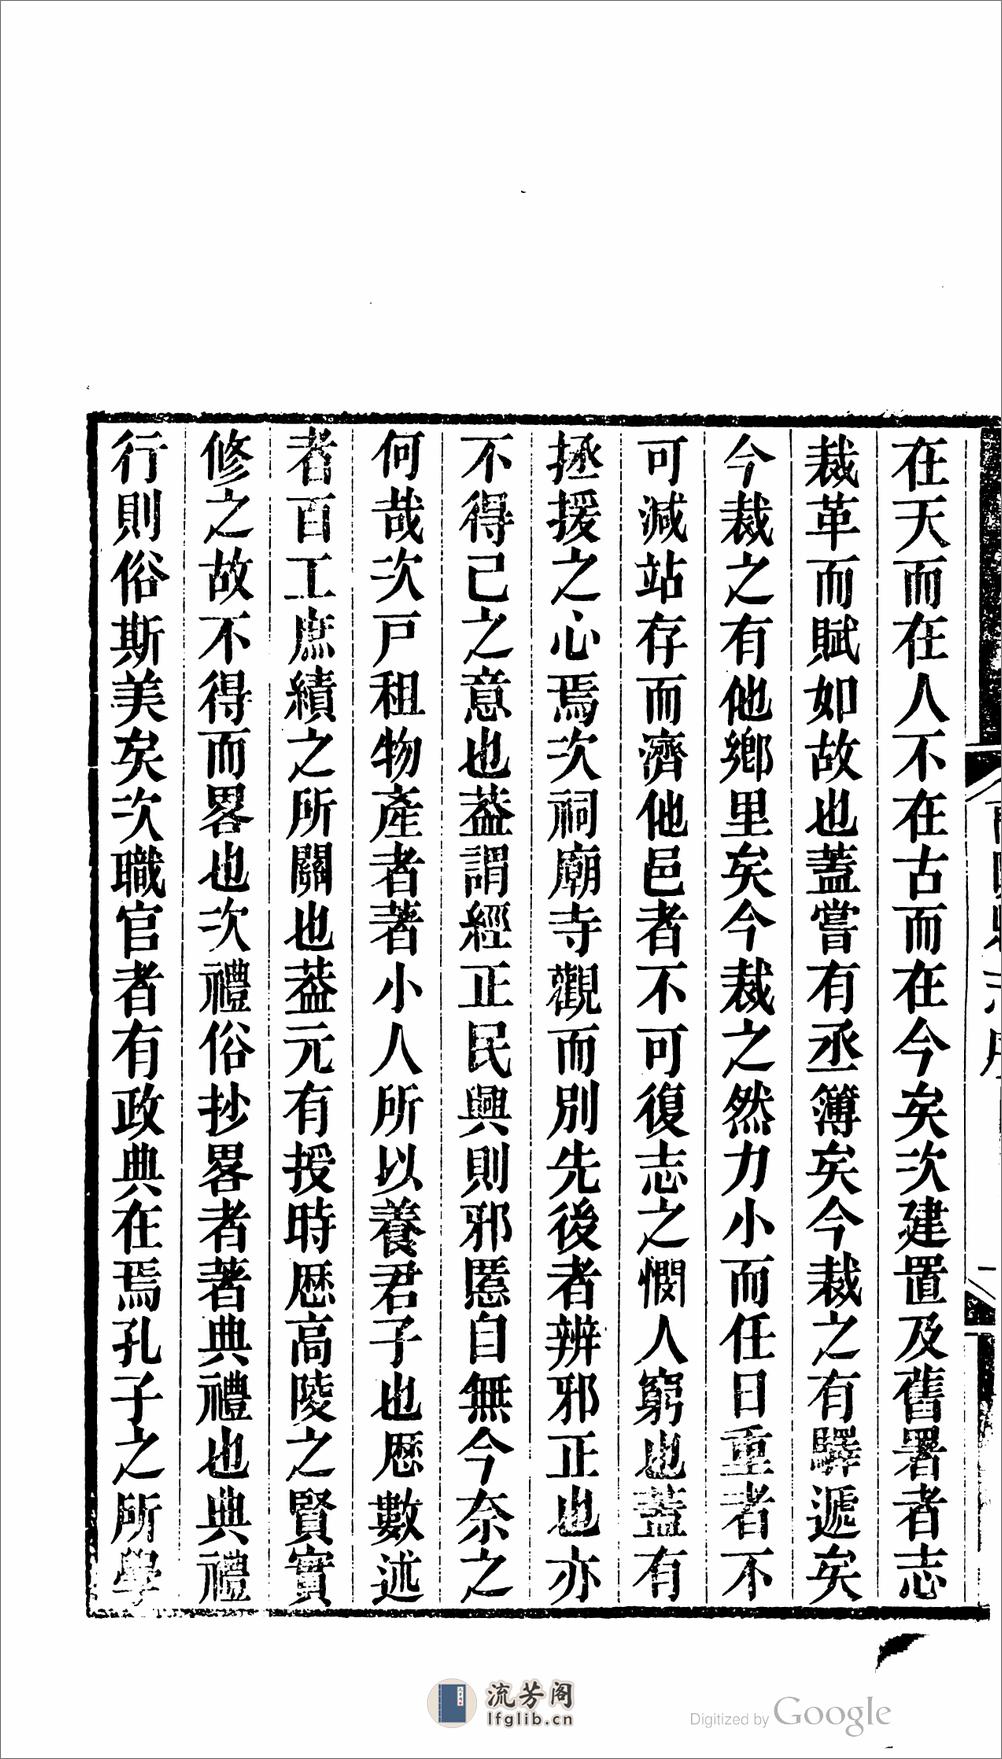 在天而在人不在古而在今矣次建置及舊署者志
裁革而賦如故也蓋嘗有丞簿矣今裁之有驛遞矣
今裁之有他鄉里矣今裁之然力小而任日重者不
可減站存而濟他邑者不可復志之憫人窮也蓋有
拯援之心焉次祠廟寺觀而別先後者辨邪正也亦
不得已之意也葢謂經正民興則邪慝自無今奈之
何哉次戸租物產者著小人所以養君子也厯數述
者百工庶績之所關也葢元有授時厯高陵之賢實
修之故不得而畧也次禮俗抄畧者著典禮也典禮
行則俗斯美矣次職官者有政典在焉孔子之所學
流芳阁
lfglib.cn
Digitized by Google